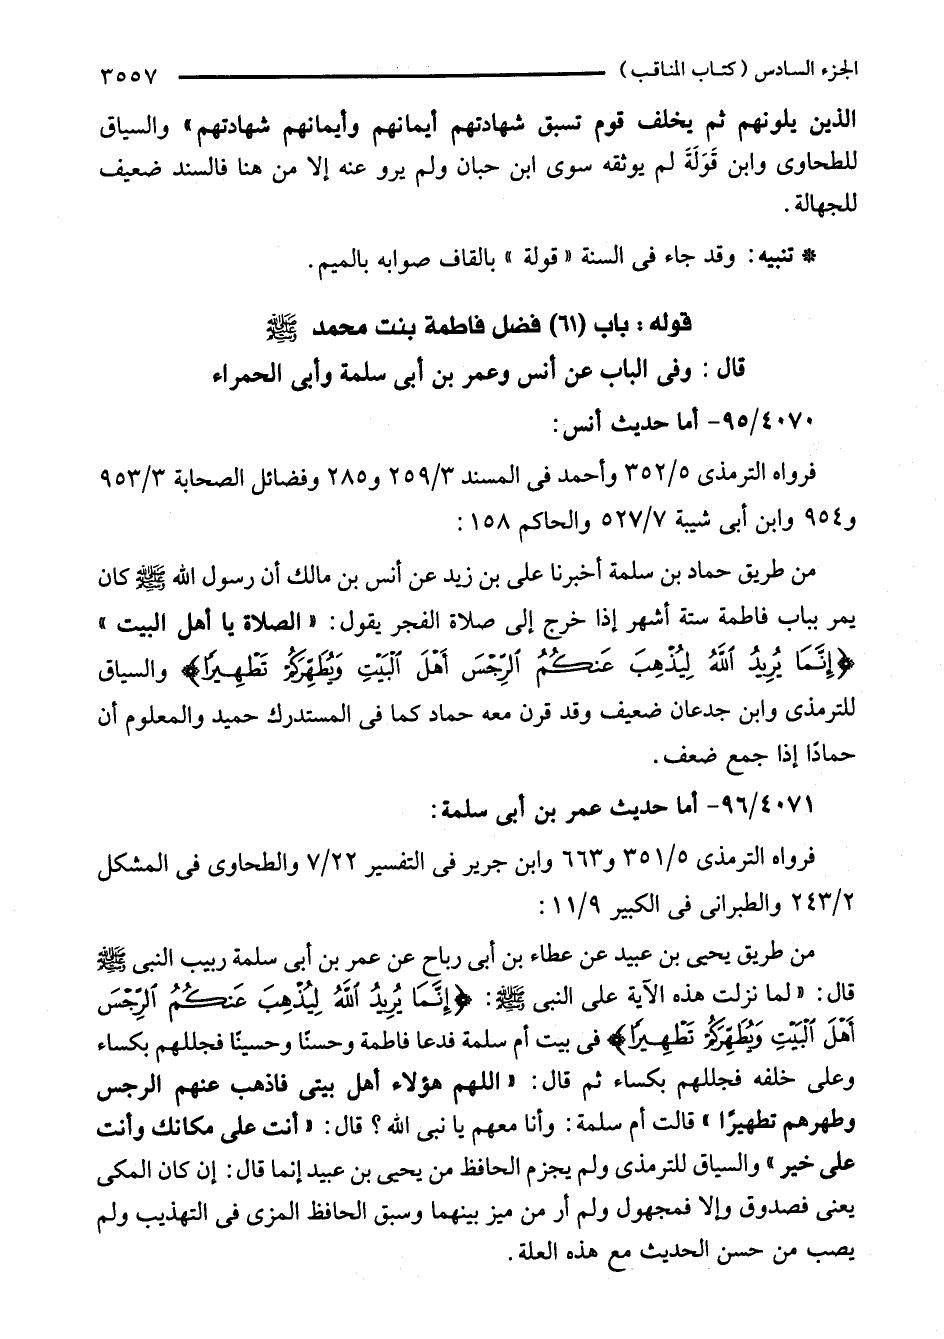 الجزء السادس (كتاب المناقب) ٣٥٥٧
الذين يلونهم ثم يخلف قوم تسبق شهادتهم أيمانهم وأيمانهم شهادتهم» والسياق
للطحاوى وابن قَوَلَةَ لم يوثقه سوى ابن حبان ولم يرو عنه إلا من هنا فالسند ضعيف
للجهالة.
* تنبيه: وقد جاء فى السنة «قولة» بالقاف صوابه بالميم.
قوله: باب (٦١) فضل فاطمة بنت محمد ﷺ
قال: وفى الباب عن أنس وعمر بن أبى سلمة وأبى الحمراء
٩٥/٤٠٧٠- أما حديث أنس:
فرواه الترمذى ٣٥٢/٥ وأحمد فى المسند ٢٥٩/٣ و٢٨٥ وفضائل الصحابة ٩٥٣/٣
و٩٥٤ وابن أبى شيبة ٥٢٧/٧ والحاكم ١٥٨:
من طريق حماد بن سلمة أخبرنا على بن زيد عن أنس بن مالك أن رسول الله ﷺ كان
يمر بباب فاطمة ستة أشهر إذا خرج إلى صلاة الفجر يقول: «الصلاة يا أهل البيت»
﴿إِنَّمَا يُرِيدُ ٱللَّهُ لِيُذْهِبَ عَنكُمُ ٱلرِّجْسَ أَهْلَ ٱلْبَيْتِ وَيُطَهِّرَكُمْ تَطْهِيرًا﴾ والسياق
للترمذى وابن جدعان ضعيف وقد قرن معه حماد كما فى المستدرك حميد والمعلوم أن
حمادًا إذا جمع ضعف.
٩٦/٤٠٧١- أما حديث عمر بن أبى سلمة:
فرواه الترمذى ٣٥١/٥ و٦٦٣ وابن جرير فى التفسير ٧/٢٢ والطحاوى فى المشكل
٢٤٣/٢ والطبرانى فى الكبير ١١/٩:
من طريق يحيى بن عبيد عن عطاء بن أبى رباح عن عمر بن أبى سلمة ربيب النبى ﷺ
قال: «لما نزلت هذه الآية على النبى ﷺ: ﴿إِنَّمَا يُرِيدُ ٱللَّهُ لِيُذْهِبَ عَنكُمُ ٱلرِّجْسَ
أَهْلَ ٱلْبَيْتِ وَيُطَهِّرَكُمْ تَطْهِيرًا﴾ فى بيت أم سلمة فدعا فاطمة وحسنًا وحسينًا فجللهم بكساء
وعلى خلفه فجللهم بكساء ثم قال: «اللهم هؤلاء أهل بيتى فاذهب عنهم الرجس
وطهرهم تطهيرًا» قالت أم سلمة: وأنا معهم يا نبى الله؟ قال: «أنت على مكانك وأنت
على خير» والسياق للترمذى ولم يجزم الحافظ من يحيى بن عبيد إنما قال: إن كان المكى
يعنى فصدوق وإلا فمجهول ولم أر من ميز بينهما وسبق الحافظ المزى فى التهذيب ولم
يصب من حسن الحديث مع هذه العلة.